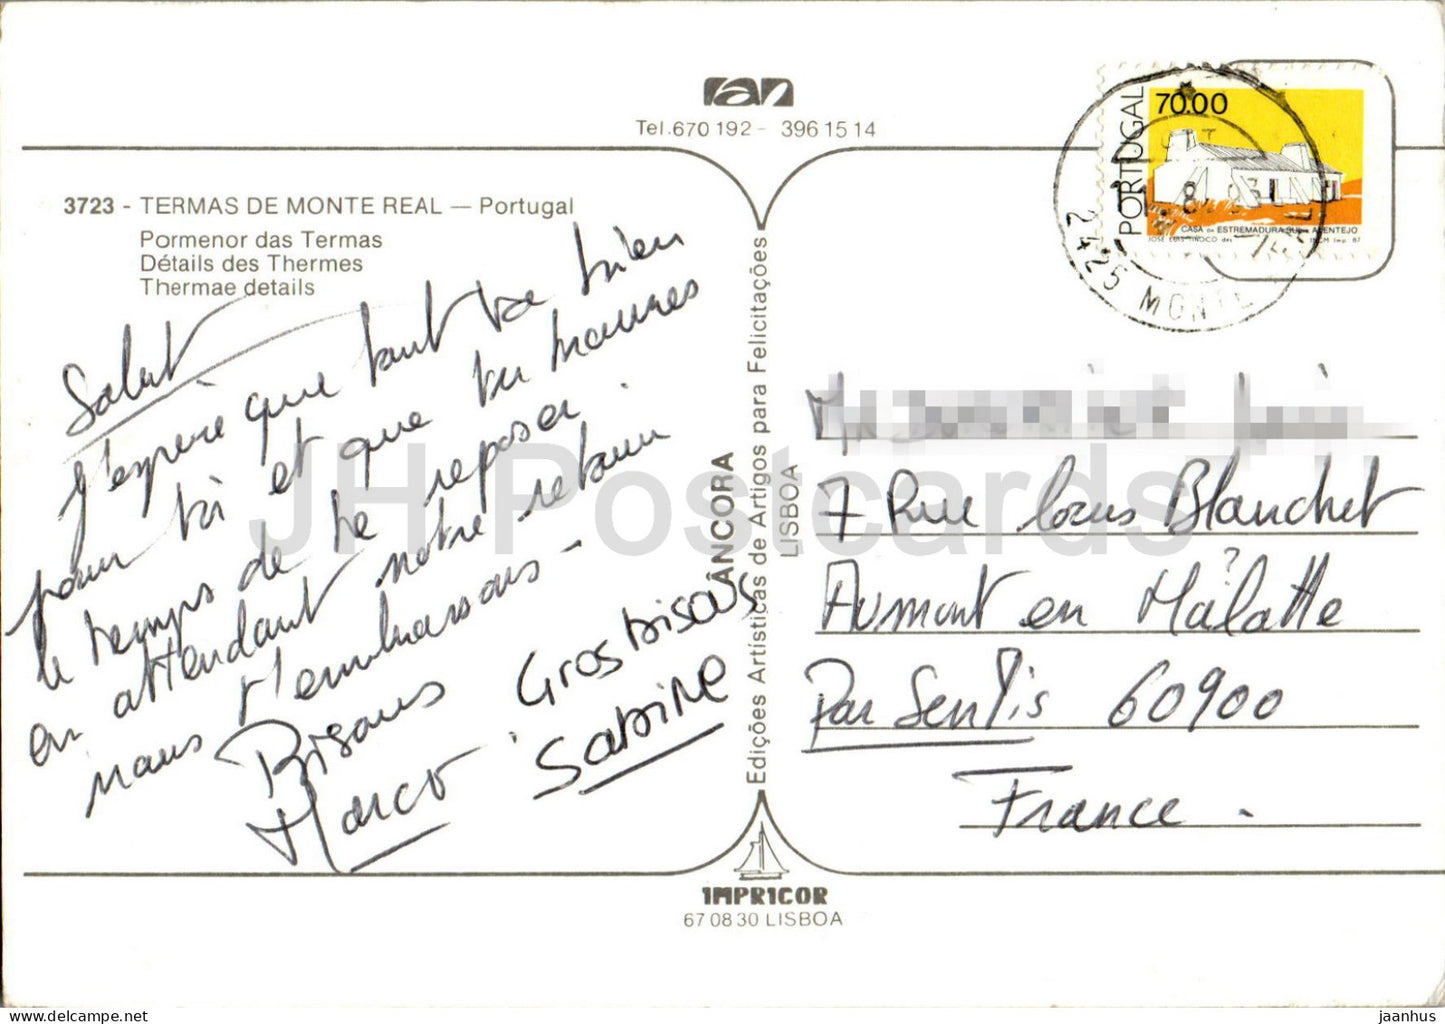 an
Tel.670 192 - 396 15 14
3723 - TERMAS DE MONTE REAL — Portugal
Pormenor das Termas
Détails des Thermes
Thermae details
Salut
J'espère que tout va bien
pour toi et que tu trouves
le temps de te reposer.
en attendant notre retour
nous t'embrassons -
Bisous
Marco.
Gros Bisous
Sabine
ÂNCORA
Edições Artísticas de Artigos para Felicitações
LISBOA
IMPRICOR
67 08 30 LISBOA
PORTUGAL
70.00
CASA da ESTREMADURA SUL e ALENTEJO
JOSÉ LUIS TINOCO des
INCM Imp. 87
2425 MONTE
7 Rue Louis Blanchet
Aumont en Halatte
Par Senlis 60900
France.
JH Postcards
jaanhus.com